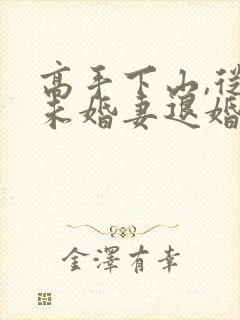 高手下山,從
未婚妻退婚
金澤有幸